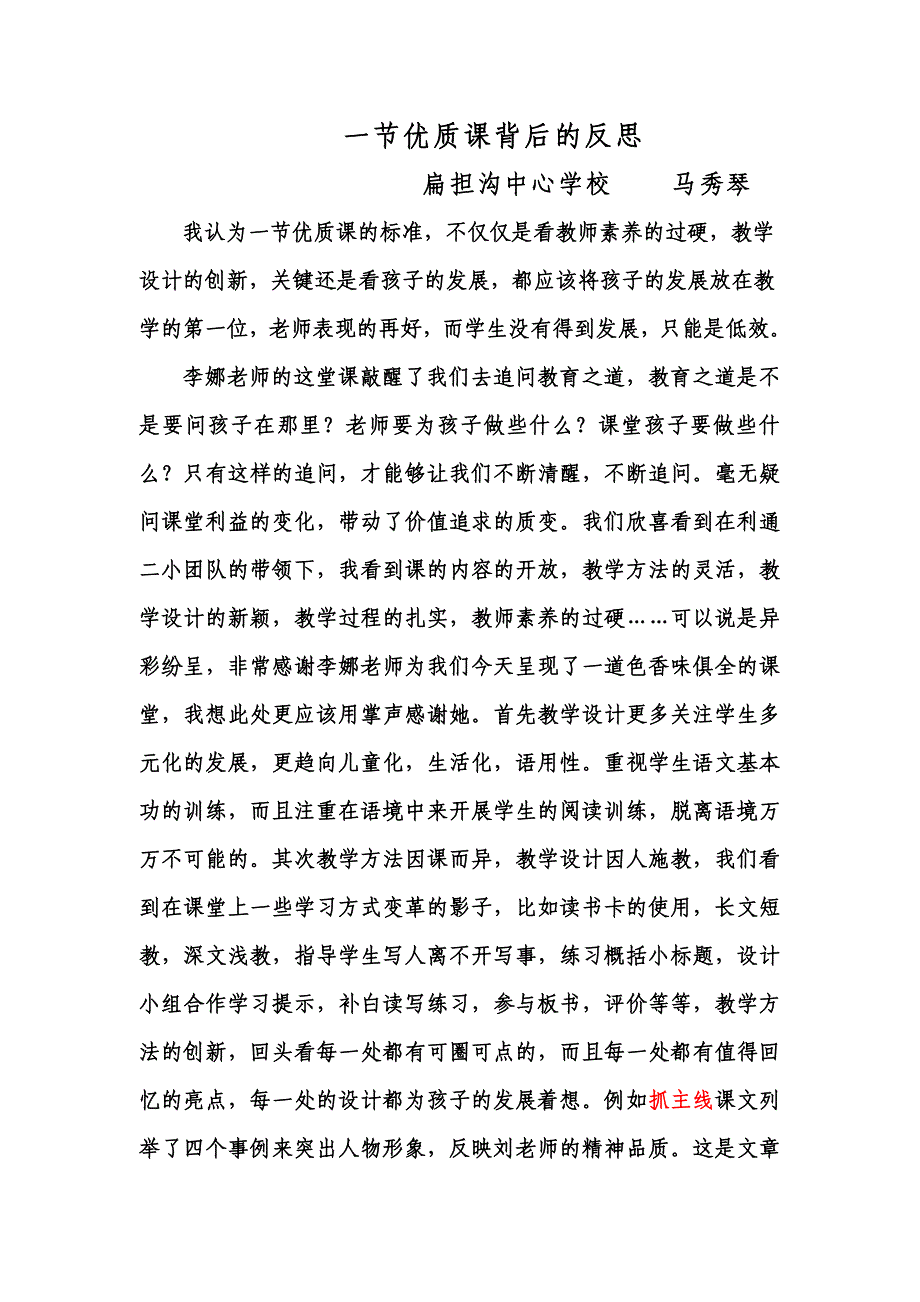 一节优质课背后的反思
扁担沟中心学校 马秀琴
我认为一节优质课的标准，不仅仅是看教师素养的过硬，教学
设计的创新，关键还是看孩子的发展，都应该将孩子的发展放在教
学的第一位，老师表现的再好，而学生没有得到发展，只能是低效。
李娜老师的这堂课敲醒了我们去追问教育之道，教育之道是不
是要问孩子在那里？老师要为孩子做些什么？课堂孩子要做些什
么？只有这样的追问，才能够让我们不断清醒，不断追问。毫无疑
问课堂利益的变化，带动了价值追求的质变。我们欣喜看到在利通
二小团队的带领下，我看到课的内容的开放，教学方法的灵活，教
学设计的新颖，教学过程的扎实，教师素养的过硬……可以说是异
彩纷呈，非常感谢李娜老师为我们今天呈现了一道色香味俱全的课
堂，我想此处更应该用掌声感谢她。首先教学设计更多关注学生多
元化的发展，更趋向儿童化，生活化，语用性。重视学生语文基本
功的训练，而且注重在语境中来开展学生的阅读训练，脱离语境万
万不可能的。其次教学方法因课而异，教学设计因人施教，我们看
到在课堂上一些学习方式变革的影子，比如读书卡的使用，长文短
教，深文浅教，指导学生写人离不开写事，练习概括小标题，设计
小组合作学习提示，补白读写练习，参与板书，评价等等，教学方
法的创新，回头看每一处都有可圈可点的，而且每一处都有值得回
忆的亮点，每一处的设计都为孩子的发展着想。例如抓主线课文列
举了四个事例来突出人物形象，反映刘老师的精神品质。这是文章